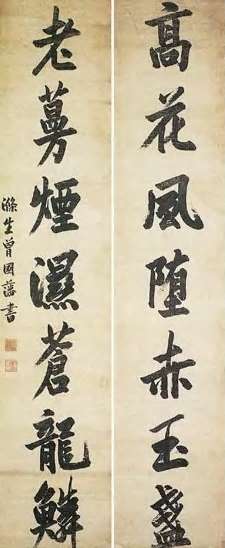 高花風堕赤玉盞
老蔓煙濕蒼龍鱗
滌生曾國藩書